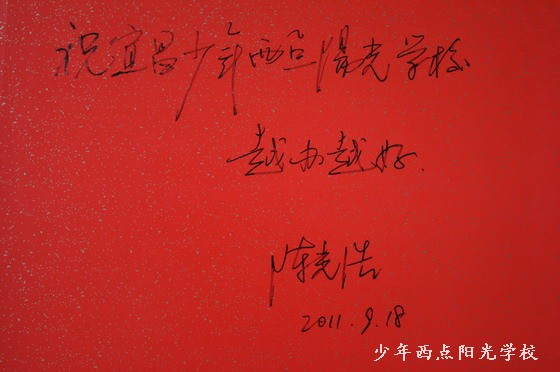 祝宜昌少年西点阳光学校
越办越好.
陈光浩
2011.9.18
少年西点阳光学校